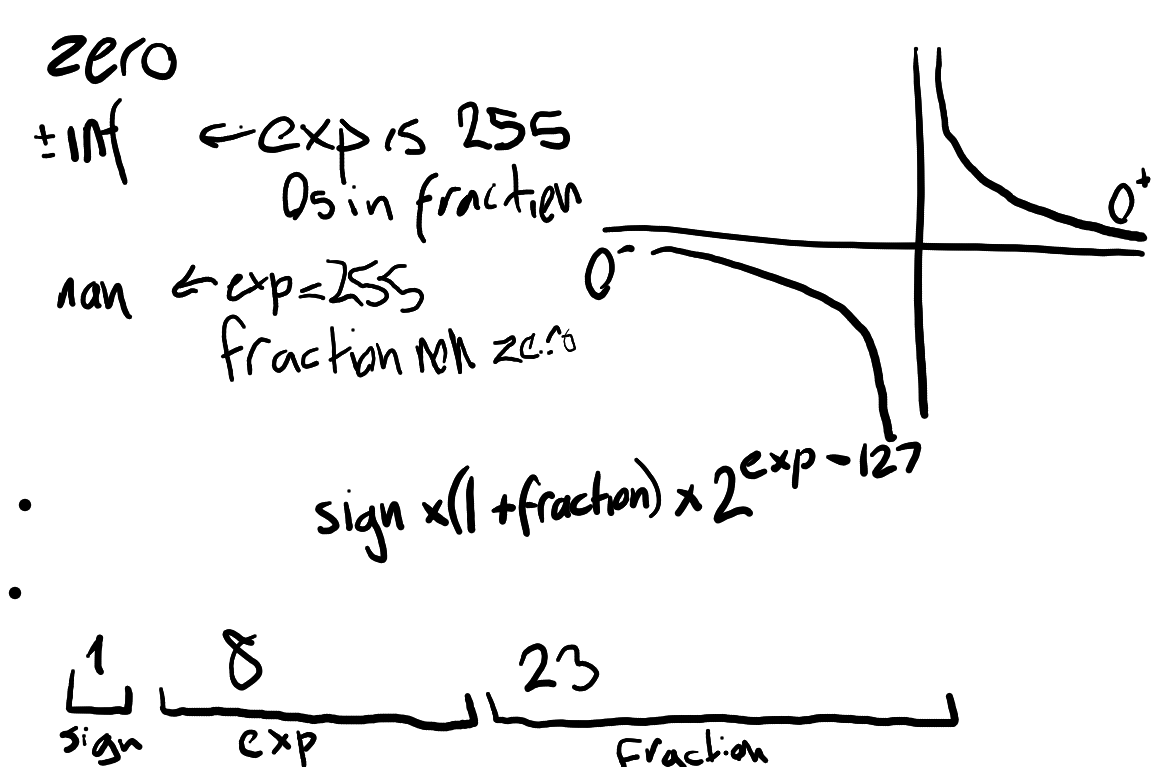 zero
±inf ← exp is 255
0s in fraction
0⁺
0⁻
nan ← exp=255
fraction non zero
sign × (1 + fraction) × 2^exp - 127
1 8 23
sign exp fraction